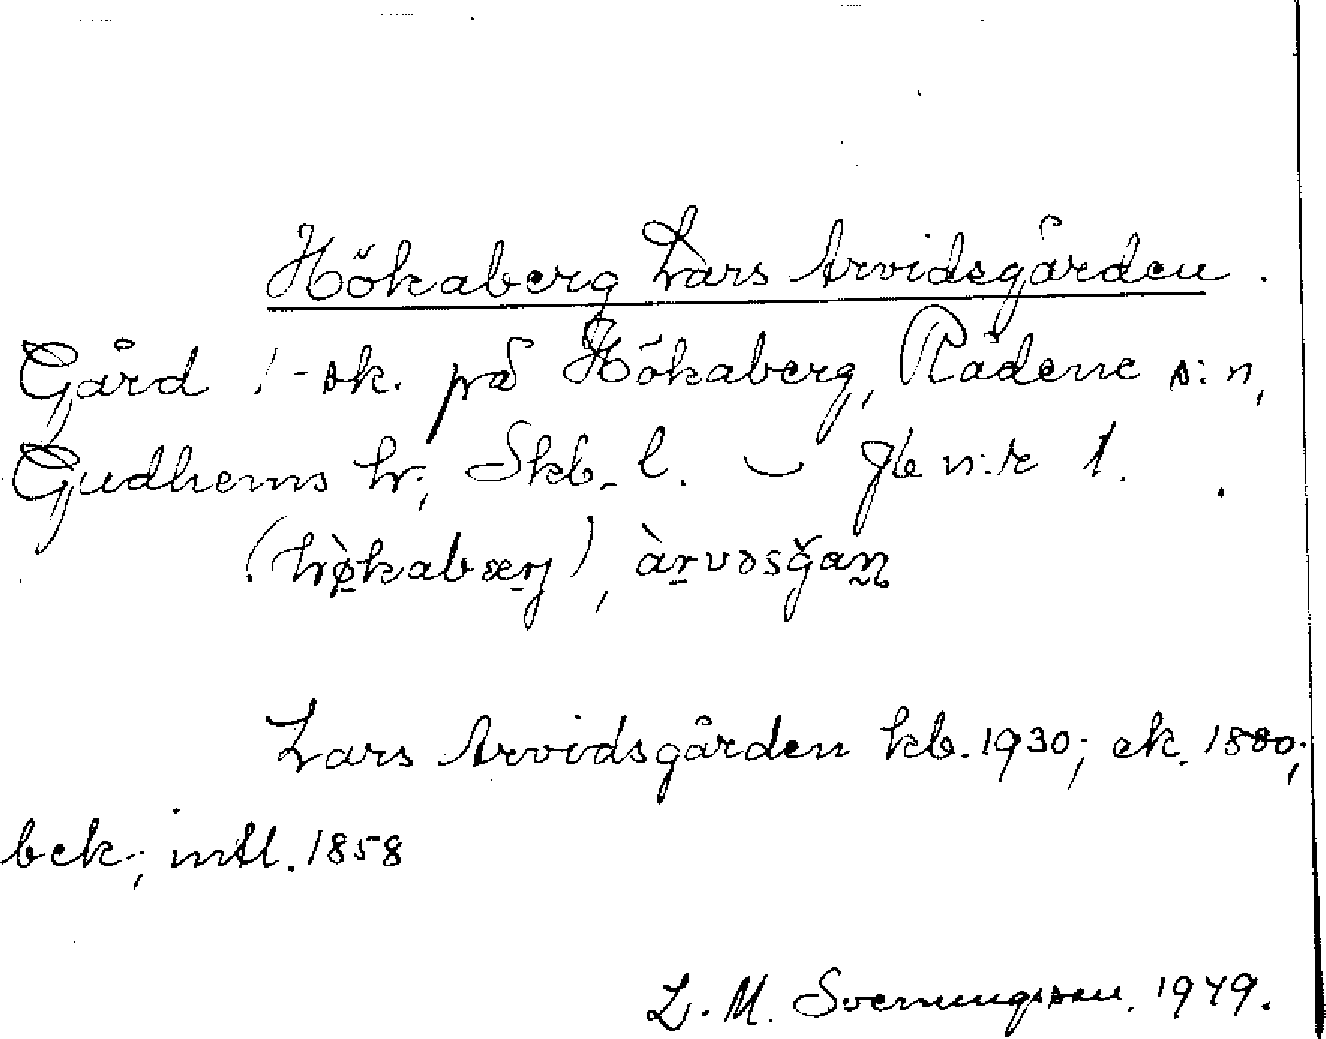 Hökaberg Lars Arvidsgården.
Gård 1-sk. på Hökaberg, Rådene s:n,
Gudhems hr, Skb. l. ⌣ jb n:r 1.
(hø̀kabærj), àrvəsğan
Lars Arvidsgården kb. 1930; ek. 1880;
bek; mtl. 1858
L. M. Svenungsson. 1949.